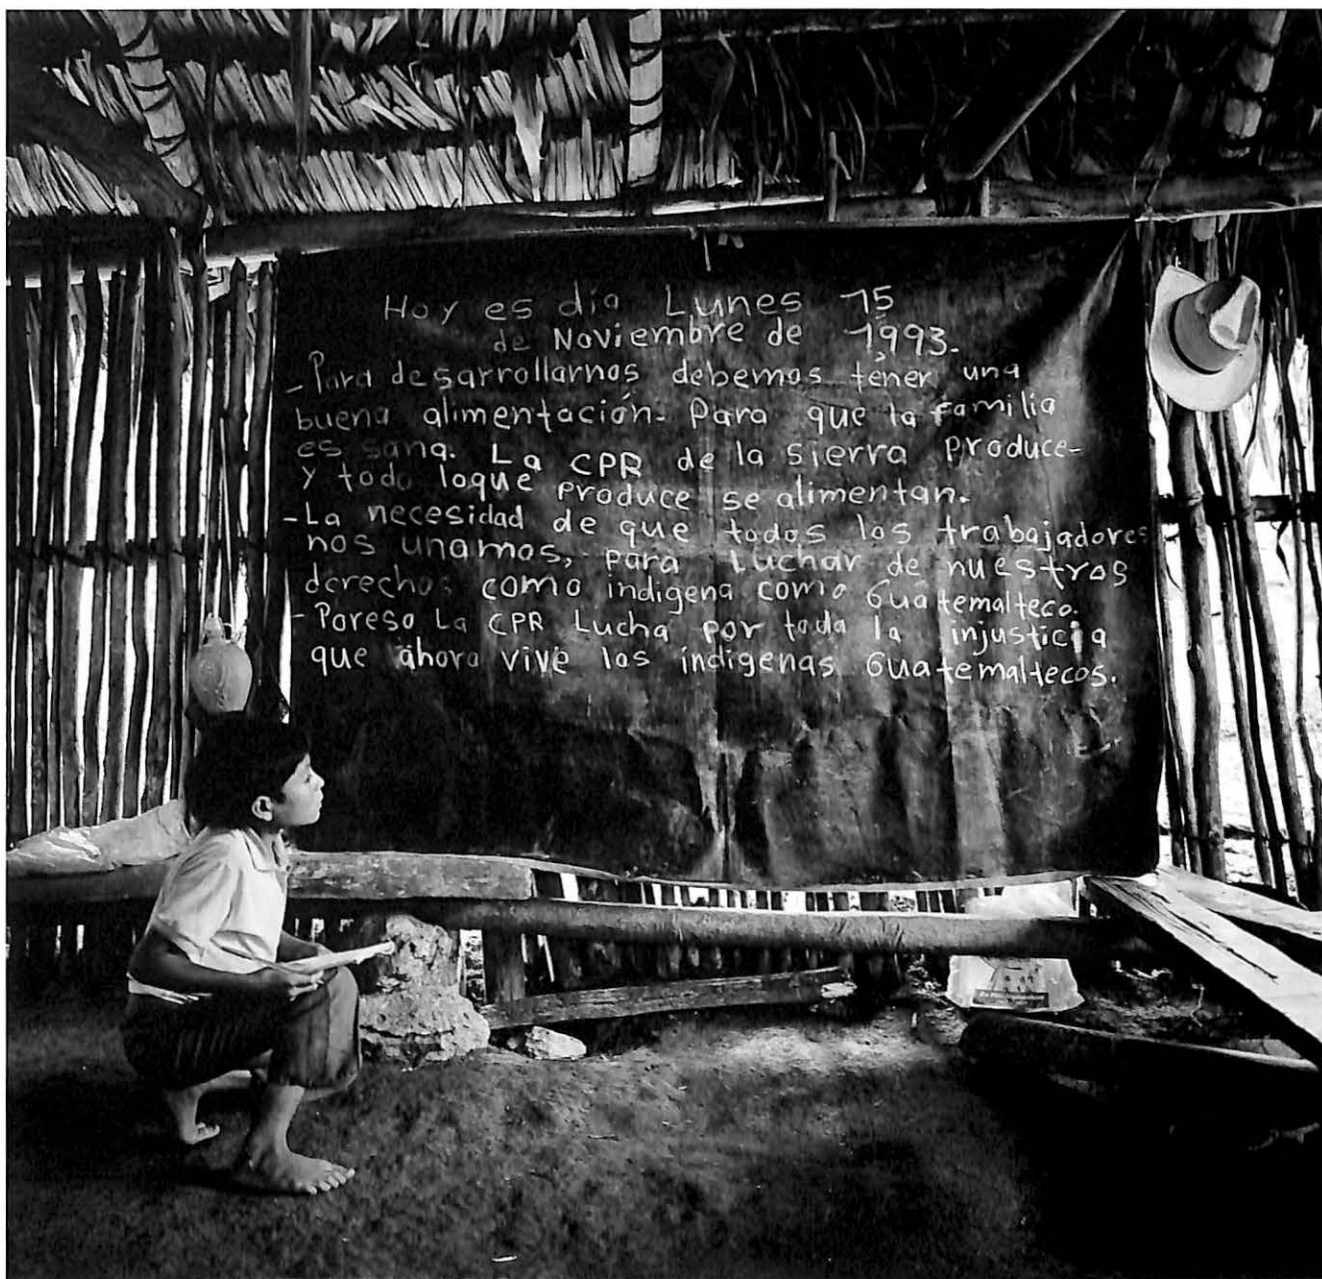 Hoy es día Lunes 15
de Noviembre de 1993.
- Para desarrollarnos debemos tener una
buena alimentación. Para que la familia
es sana. La CPR de la sierra produce-
y todo loque produce se alimentan.
- La necesidad de que todos los trabajadores
nos unamos, para Luchar de nuestros
derechos como indigena como Guatemalteco.
- Poreso La CPR Lucha por toda la injusticia
que ahora vive los indigenas Guatemaltecos.